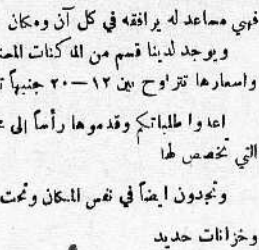 فهي مساعد له يرافقه في كل آن ومكان
ويوجد لدينا قسم من الماكنات
واسعارها تتراوح بين ١٢ — ٢٠ جنيهاً
اعدوا طلباتكم وقدموها رأساً إلى
التي تخصص لها
وتجدون ايضاً في نفس المكان وتحت
وخزانات حديد